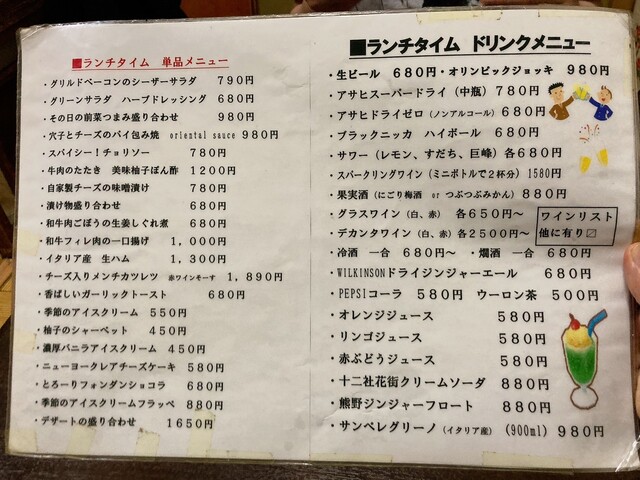 ■ランチタイム 単品メニュー
・グリルドベーコンのシーザーサラダ 790円
・グリーンサラダ ハーブドレッシング 680円
・その日の前菜つまみ盛り合わせ 980円
・穴子とチーズのパイ包み焼 oriental sauce 980円
・スパイシー!チョリソー 780円
・牛肉のたたき 美味柚子ぽん酢 1200円
・自家製チーズの味噌漬け 780円
・漬け物盛り合わせ 680円
・和牛肉ごぼうの生姜しぐれ煮 680円
・和牛フィレ肉の一口揚げ 1,000円
・イタリア産 生ハム 1,300円
・チーズ入りメンチカツレツ 赤ワインそーす 1,890円
・香ばしいガーリックトースト 680円
・季節のアイスクリーム 550円
・柚子のシャーベット 450円
・濃厚バニラアイスクリーム 450円
・ニューヨークレアチーズケーキ 580円
・とろーりフォンダンショコラ 680円
・季節のアイスクリームフラッペ 880円
・デザートの盛り合わせ 1650円
■ランチタイム ドリンクメニュー
・生ビール 680円・オリンピックジョッキ 980円
・アサヒスーパードライ(中瓶)780円
・アサヒドライゼロ(ノンアルコール)680円
・ブラックニッカ ハイボール 680円
・サワー(レモン、すだち、巨峰)各680円
・スパークリングワイン(ミニボトルで2杯分)1580円
・果実酒(にごり梅酒 or つぶつぶみかん)880円
・グラスワイン(白、赤) 各650円〜
・デカンタワイン(白、赤)各2500円〜
ワインリスト
他に有り〼
・冷酒 一合 680円〜 ・燗酒 一合 680円
・WILKINSONドライジンジャーエール 680円
・PEPSIコーラ 580円 ウーロン茶 500円
・オレンジジュース 580円
・リンゴジュース 580円
・赤ぶどうジュース 580円
・十二社花街クリームソーダ 880円
・熊野ジンジャーフロート 880円
・サンペレグリーノ(イタリア産) (900ml)980円